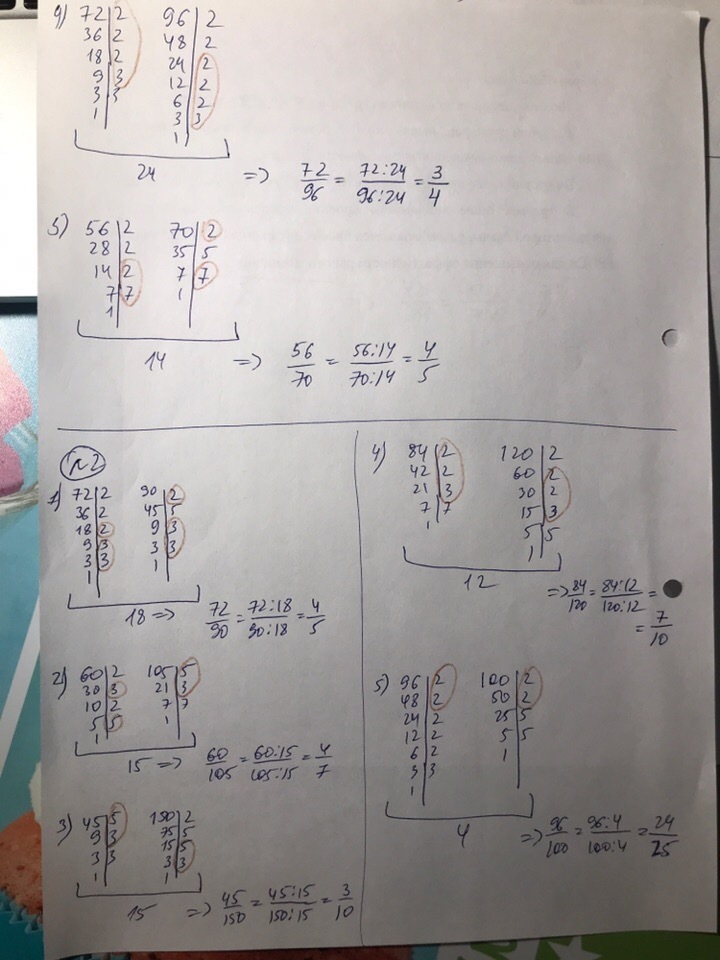 4)
72|2 96|2
36|2 48|2
18|2 24|2
9|3 12|2
3|3 6|2
1| 3|3
1|
24 => 72/96 = 72:24/96:24 = 3/4
5)
56|2 70|2
28|2 35|5
14|2 7|7
7|7 1|
1|
14 => 56/70 = 56:14/70:14 = 4/5
№2
1)
72|2 90|2
36|2 45|5
18|2 9|3
9|3 3|3
3|3 1|
1|
18 => 72/90 = 72:18/90:18 = 4/5
2)
60|2 105|5
30|3 21|3
10|2 7|7
5|5 1|
1|
15 => 60/105 = 60:15/105:15 = 4/7
3)
45|5 150|2
9|3 75|5
3|3 15|5
1| 3|3
1|
15 => 45/150 = 45:15/150:15 = 3/10
4)
84|2 120|2
42|2 60|2
21|3 30|2
7|7 15|3
1| 5|5
1|
12
=> 84/120 = 84:12/120:12 =
= 7/10
5)
96|2 100|2
48|2 50|2
24|2 25|5
12|2 5|5
6|2 1|
3|3
1|
4 => 96/100 = 96:4/100:4 = 24/25